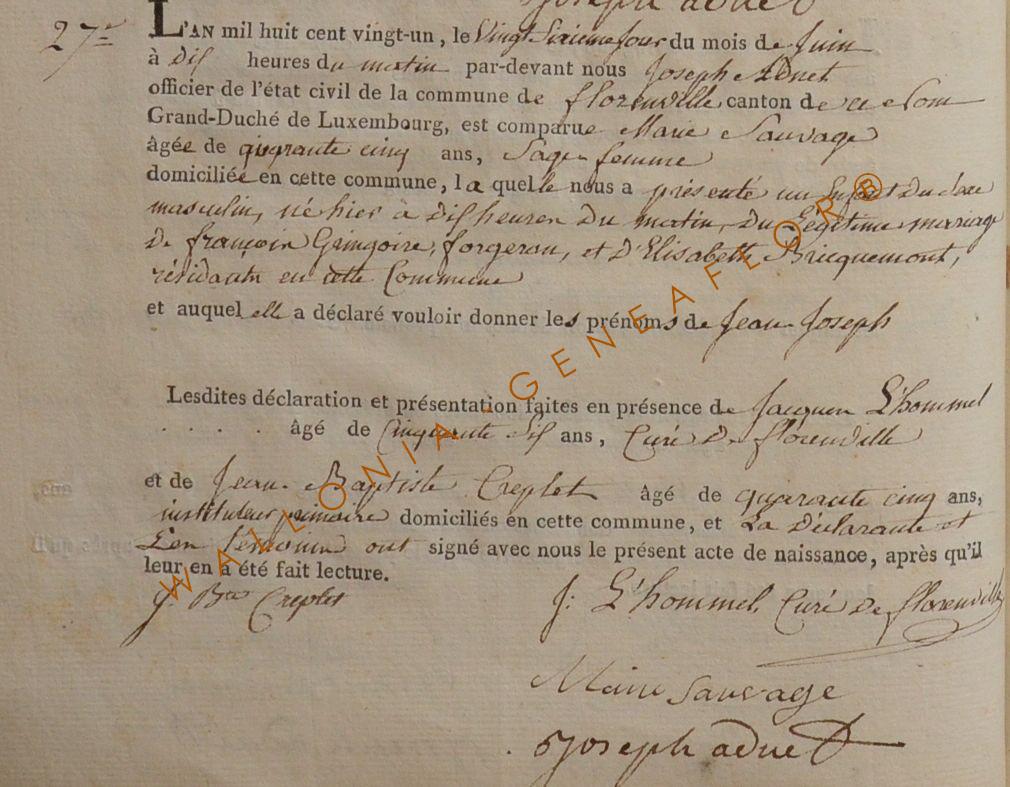 Joseph adnet
27e
L'AN mil huit cent vingt-un, le Vingt Sixieme jour du mois de Juin
à dix heures du matin par-devant nous Joseph Adnet
officier de l'état civil de la commune de florenville canton de ce Nom
Grand-Duché de Luxembourg, est comparue Marie Sauvage
âgée de quarante cinq ans, Sage-femme
domiciliée en cette commune, la quelle nous a présenté un Enfant du sexe
masculin, né hier à dix heures du matin, du Legitime mariage
de françois Gringoire, forgeron, et d'Elisabeth Bricquemont,
résidants en cette Commune
et auquel elle a déclaré vouloir donner les prénoms de Jean-Joseph
Lesdites déclaration et présentation faites en présence de Jacques L'hommel
. . . . . âgé de Cinquante Six ans, Curé de florenville
et de Jean-Baptiste Creplet âgé de quarante cinq ans,
instituteur primaire domiciliés en cette commune, et La Déclarante et
Les témoins ont signé avec nous le présent acte de naissance, après qu'il
leur en a été fait lecture.
J. Bte Creplet J: L'hommel Curé de florenville
Marie Sauvage
Joseph adnet
WALLONIA-GENEAFLORB®